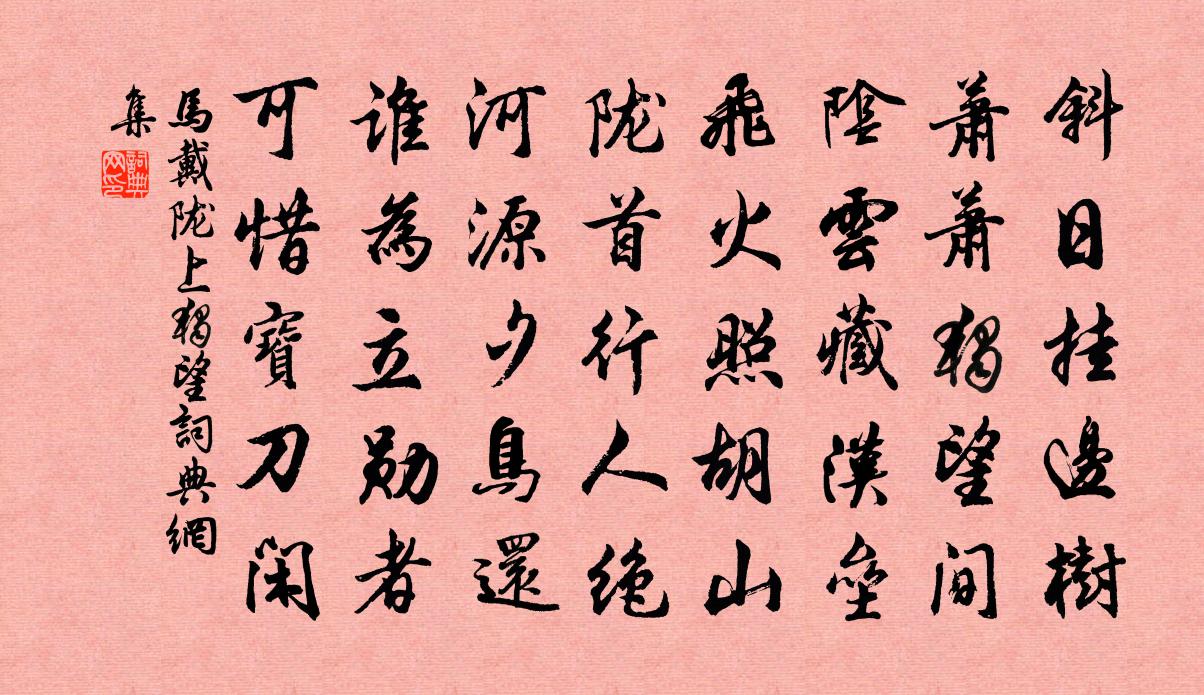 斜日挂邊樹
蕭蕭獨望間
陰雲藏漢壘
飛火照胡山
陇首行人绝
河源夕鳥還
誰為立勋者
可惜寶刀閑
馬戴陇上獨望詞典網
集
詞典網印